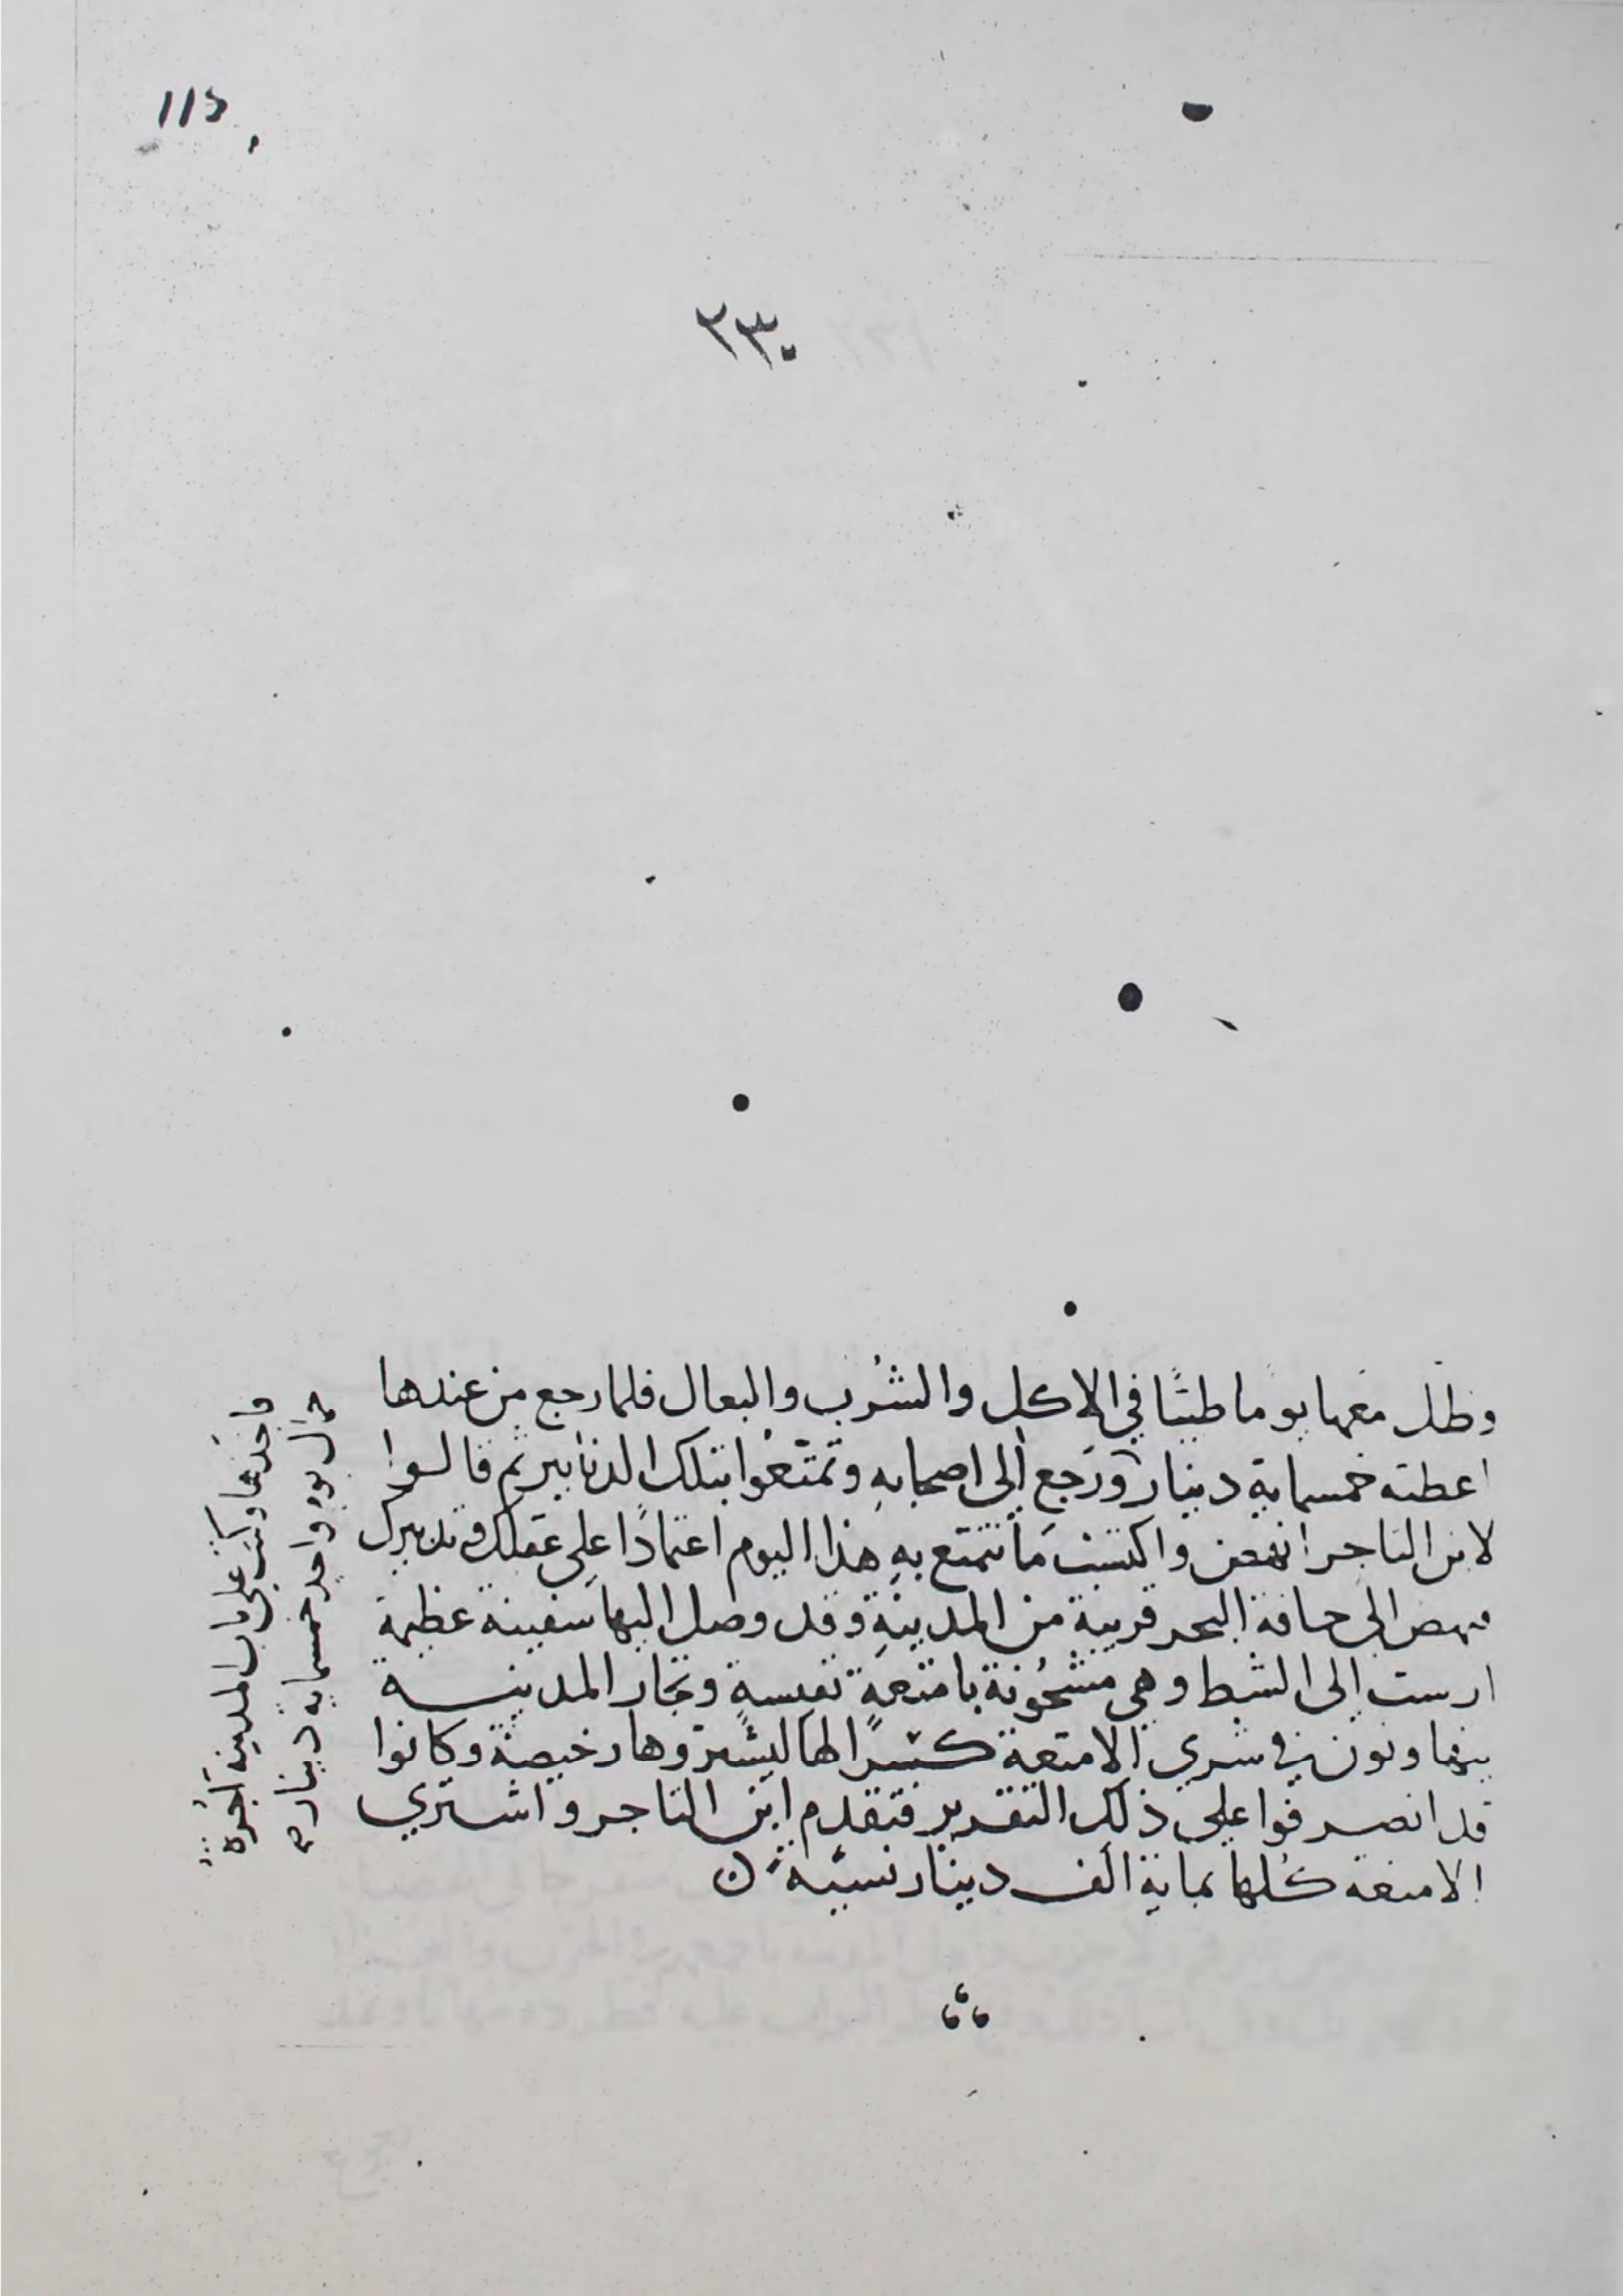 115
٢٣٠
وظل معها يوما طيبًا في الاكل والشُرب والبعال فلما رجع من عندها
اعطته خمسماية دينار ورَجع الى اصحابهِ وتمتّعُوا بتلك الدنانير ثم قالوا
لابن التاجر انهض واكتسب مَا نتمتع بهِ هذا اليوم اعتمادًا على عقلك وتدبيرك
فنهض الى حافة البحر قريبة من المدينةِ وقد وصل اليها سَفينة عظيمة
ارست الى الشط وهى مشحُونة بامتعةٍ نفيسةٍ وتجار المدينة
يتهاونون في شرى الامتعة كسرًا لها ليشتروها رخيصة وكانوا
قد انصرفوا على ذلك التقدير فتقدم ابن التاجر واشترى
الامتعة كلها بماية الف دينار نسيّةً
فاخذها وكتب على باب المدينة اجُرة
جمال يوم واحدٍ خمسماية دينار